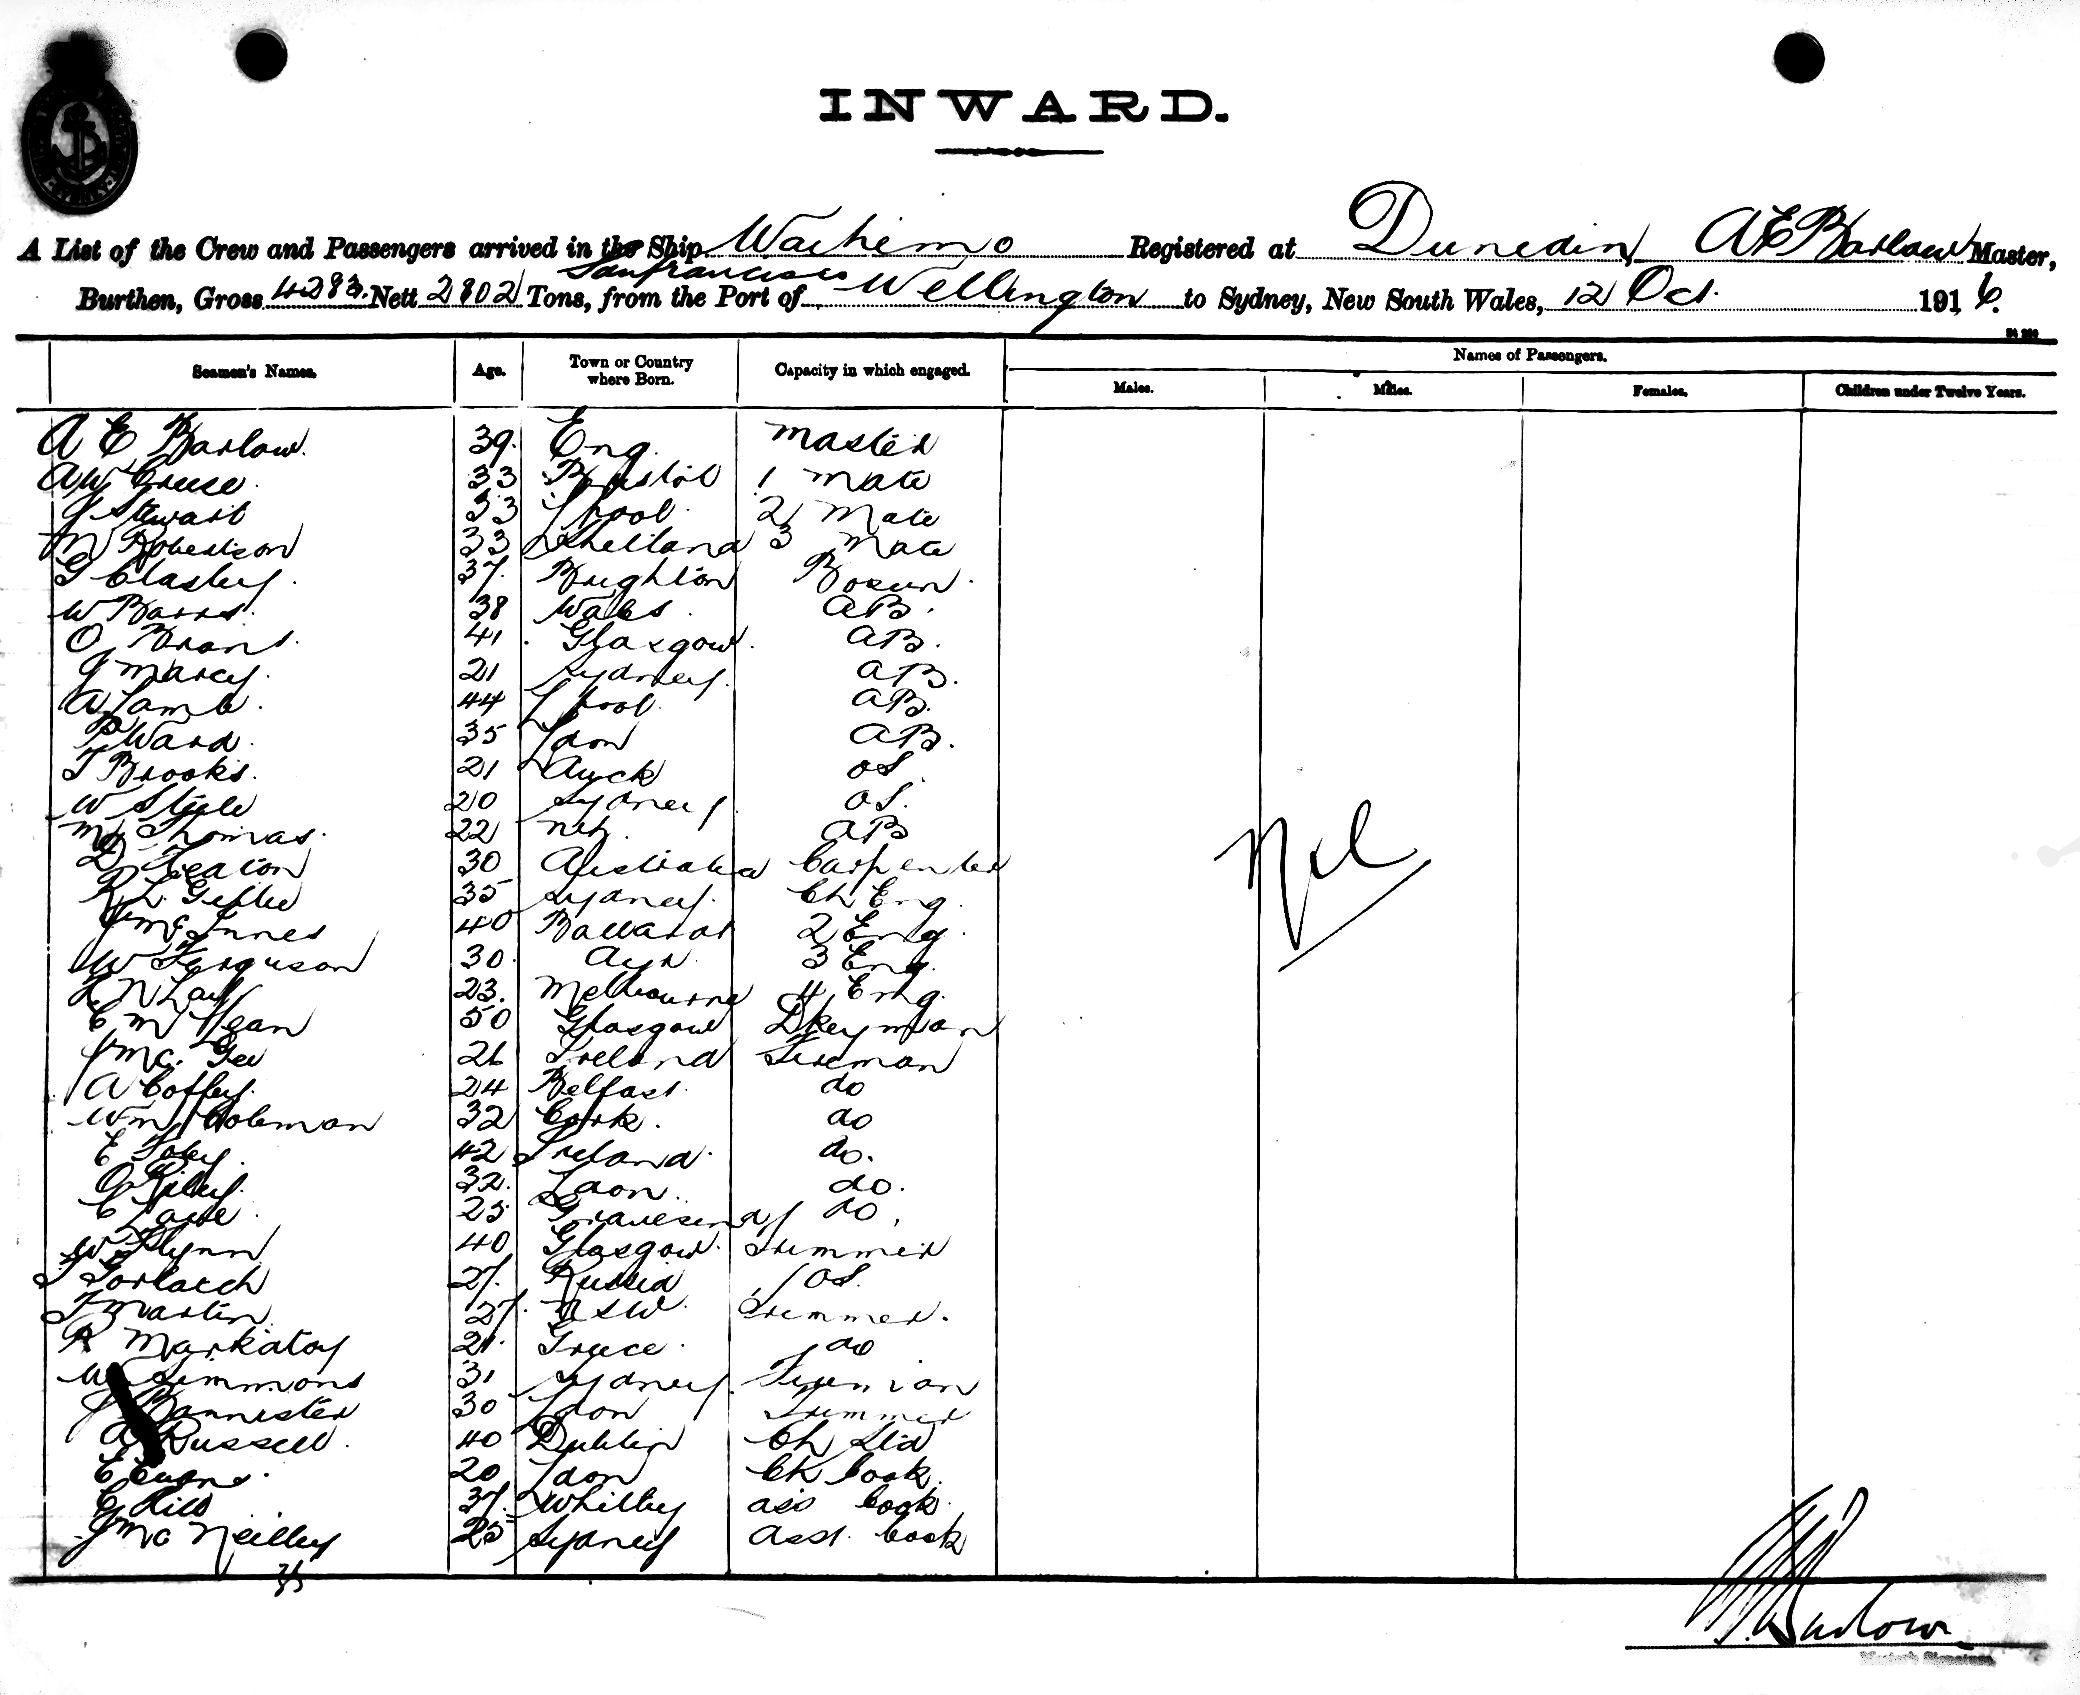 INWARD.
A List of the Crew and Passengers arrived in the Ship Waihemo Registered at Dunedin A E Barlow Master,
San Francisco
Burthen, Gross 4283 Nett 2802 Tons, from the Port of Wellington to Sydney, New South Wales, 12 Oct. 1916.
Seamen's Names. Age. Town or Country where Born. Capacity in which engaged. Names of Passengers.
Males. Males. Females. Children under Twelve Years.
A E Barlow. 39. Eng. Master
A W Cruse. 33 Bristol 1 Mate
J Stewart 33 L'pool. 2 Mate
M Robertson 33 Shetland 3 Mate
G Clasby. 37. Brighton Bosun.
W Barrs. 38 Wales. AB.
O Brans. 41. Glasgow. AB.
J Marcy. 21 Sydney. AB.
A Lamb. 44 L'pool. AB.
P Ward. 35 Ldon AB.
T Brooks. 21 Auck OS.
W Steele 20 Sydney. OS.
M Thomas. 22 AB
D Heaton 30 Australia Carpenter
R L 35 Sydney. Ch Eng.
J McInnes 40 Ballarat 2 Eng.
W Ferguson 30. Ayr. 3 Eng.
N Lay 23. Melbourne 4 Eng.
C McLean 50 Glasgow Dkeyman
J McGee 26 Ireland Fireman
A Coffey. 24 Belfast. do
Wm Coleman 32 Cork. do
E Foley. 42 Ireland. do.
G Riley. 32. Ldon. do.
C Lane. 25 Gravesend do.
W Flynn 40 Glasgow. Trimmer
T Gorlatch 27. Russia OS.
T Martin 27. NSW. Trimmer.
A Markatoy 21. Greece. do
W Simmons 31 Sydney. Fireman
J Bannister 30 Ldon Trimmer
A Russell. 40 Dublin Ch Std
E Evans. 20 Ldon Ch Cook.
G Hill 37. Whitby ass Cook.
J McNeilley 25 Sydney asst. Cook
Nil
35
Barlow
Master's Signature.